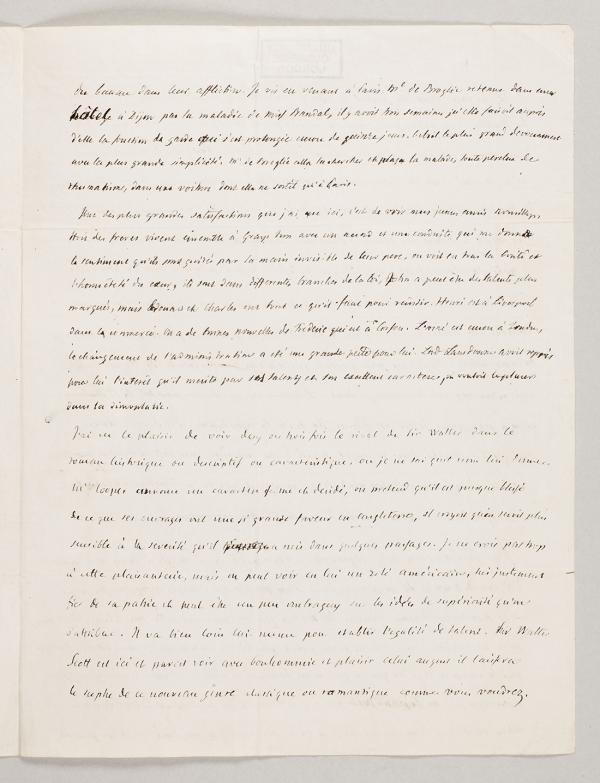 du baume dans leur affliction. Je vis en venant à Paris Me de Broglie retenue dans une
hôtel à Dijon par la maladie de miss Randal, il y avoit trois semaines qu'elle faisoit auprès
d'elle la fonction de garde qui s'est prolongée encore de quinze jours. C'étoit le plus grand devouement
avec la plus grande simplicité. Mr de Broglie alla la chercher et la malade, toute percluse de
rhumatisme, dans une voiture dont elle ne sortit qu'à Paris.
Une des plus grandes satisfactions que j'ai eue ici, c'est de voir mes jeunes amis Romillys.
trois des freres vivent ensemble à Grays Inn avec un accord et une conduite qui me donne
le sentiment qu'ils sont guidés par la main invisible de leur pere, on voit en tous la bonté et
l'honnêteté du cœur, ils sont dans differentes branches de la loi, John a peut être des talents plus
marqués, mais Edouard et Charles ont tout ce qu'il faut pour réussir. Henri est à Liverpool
dans le commerce. On a de bonnes nouvelles de Frederic qui est à Corfou. est encor à Londres,
le changement de l'administration a été une grande perte pour lui. Lord Lansdowne avoit repris
pour lui l'interêt qu'il merite par ses talents et son excellent caractere, on vouloit le placer
dans la diplomatie.
J'ai eu le plaisir de voir deux ou trois fois le rival de Sir Walter dans le
roman historique ou descriptif ou caracteristique, ou je ne sai quel nom lui donner.
Mr Cooper annonce un caractere ferme et décidé, on pretend qu'il est presque blasé
de ce que ses ouvrages ont une si grande faveur en Angleterre, il croyoit qu'on seroit plus
sensible à la severité qu'il a mis dans quelques passages. Je ne crois pas trop
à cette plaisanterie, mais on peut voir en lui un zelé américain, très justement
fier de sa patrie et peut être un peu ombrageux sur les idées de superiorité qu'on
s'attribue. Il va bien loin lui meme pour etablir l'egalité de talent. Sir Walter
Scott est ici et paroit voir avec bonhommie et plaisir celui auquel il laissera
le sceptre de ce nouveau genre classique ou romantique comme vous voudrez.